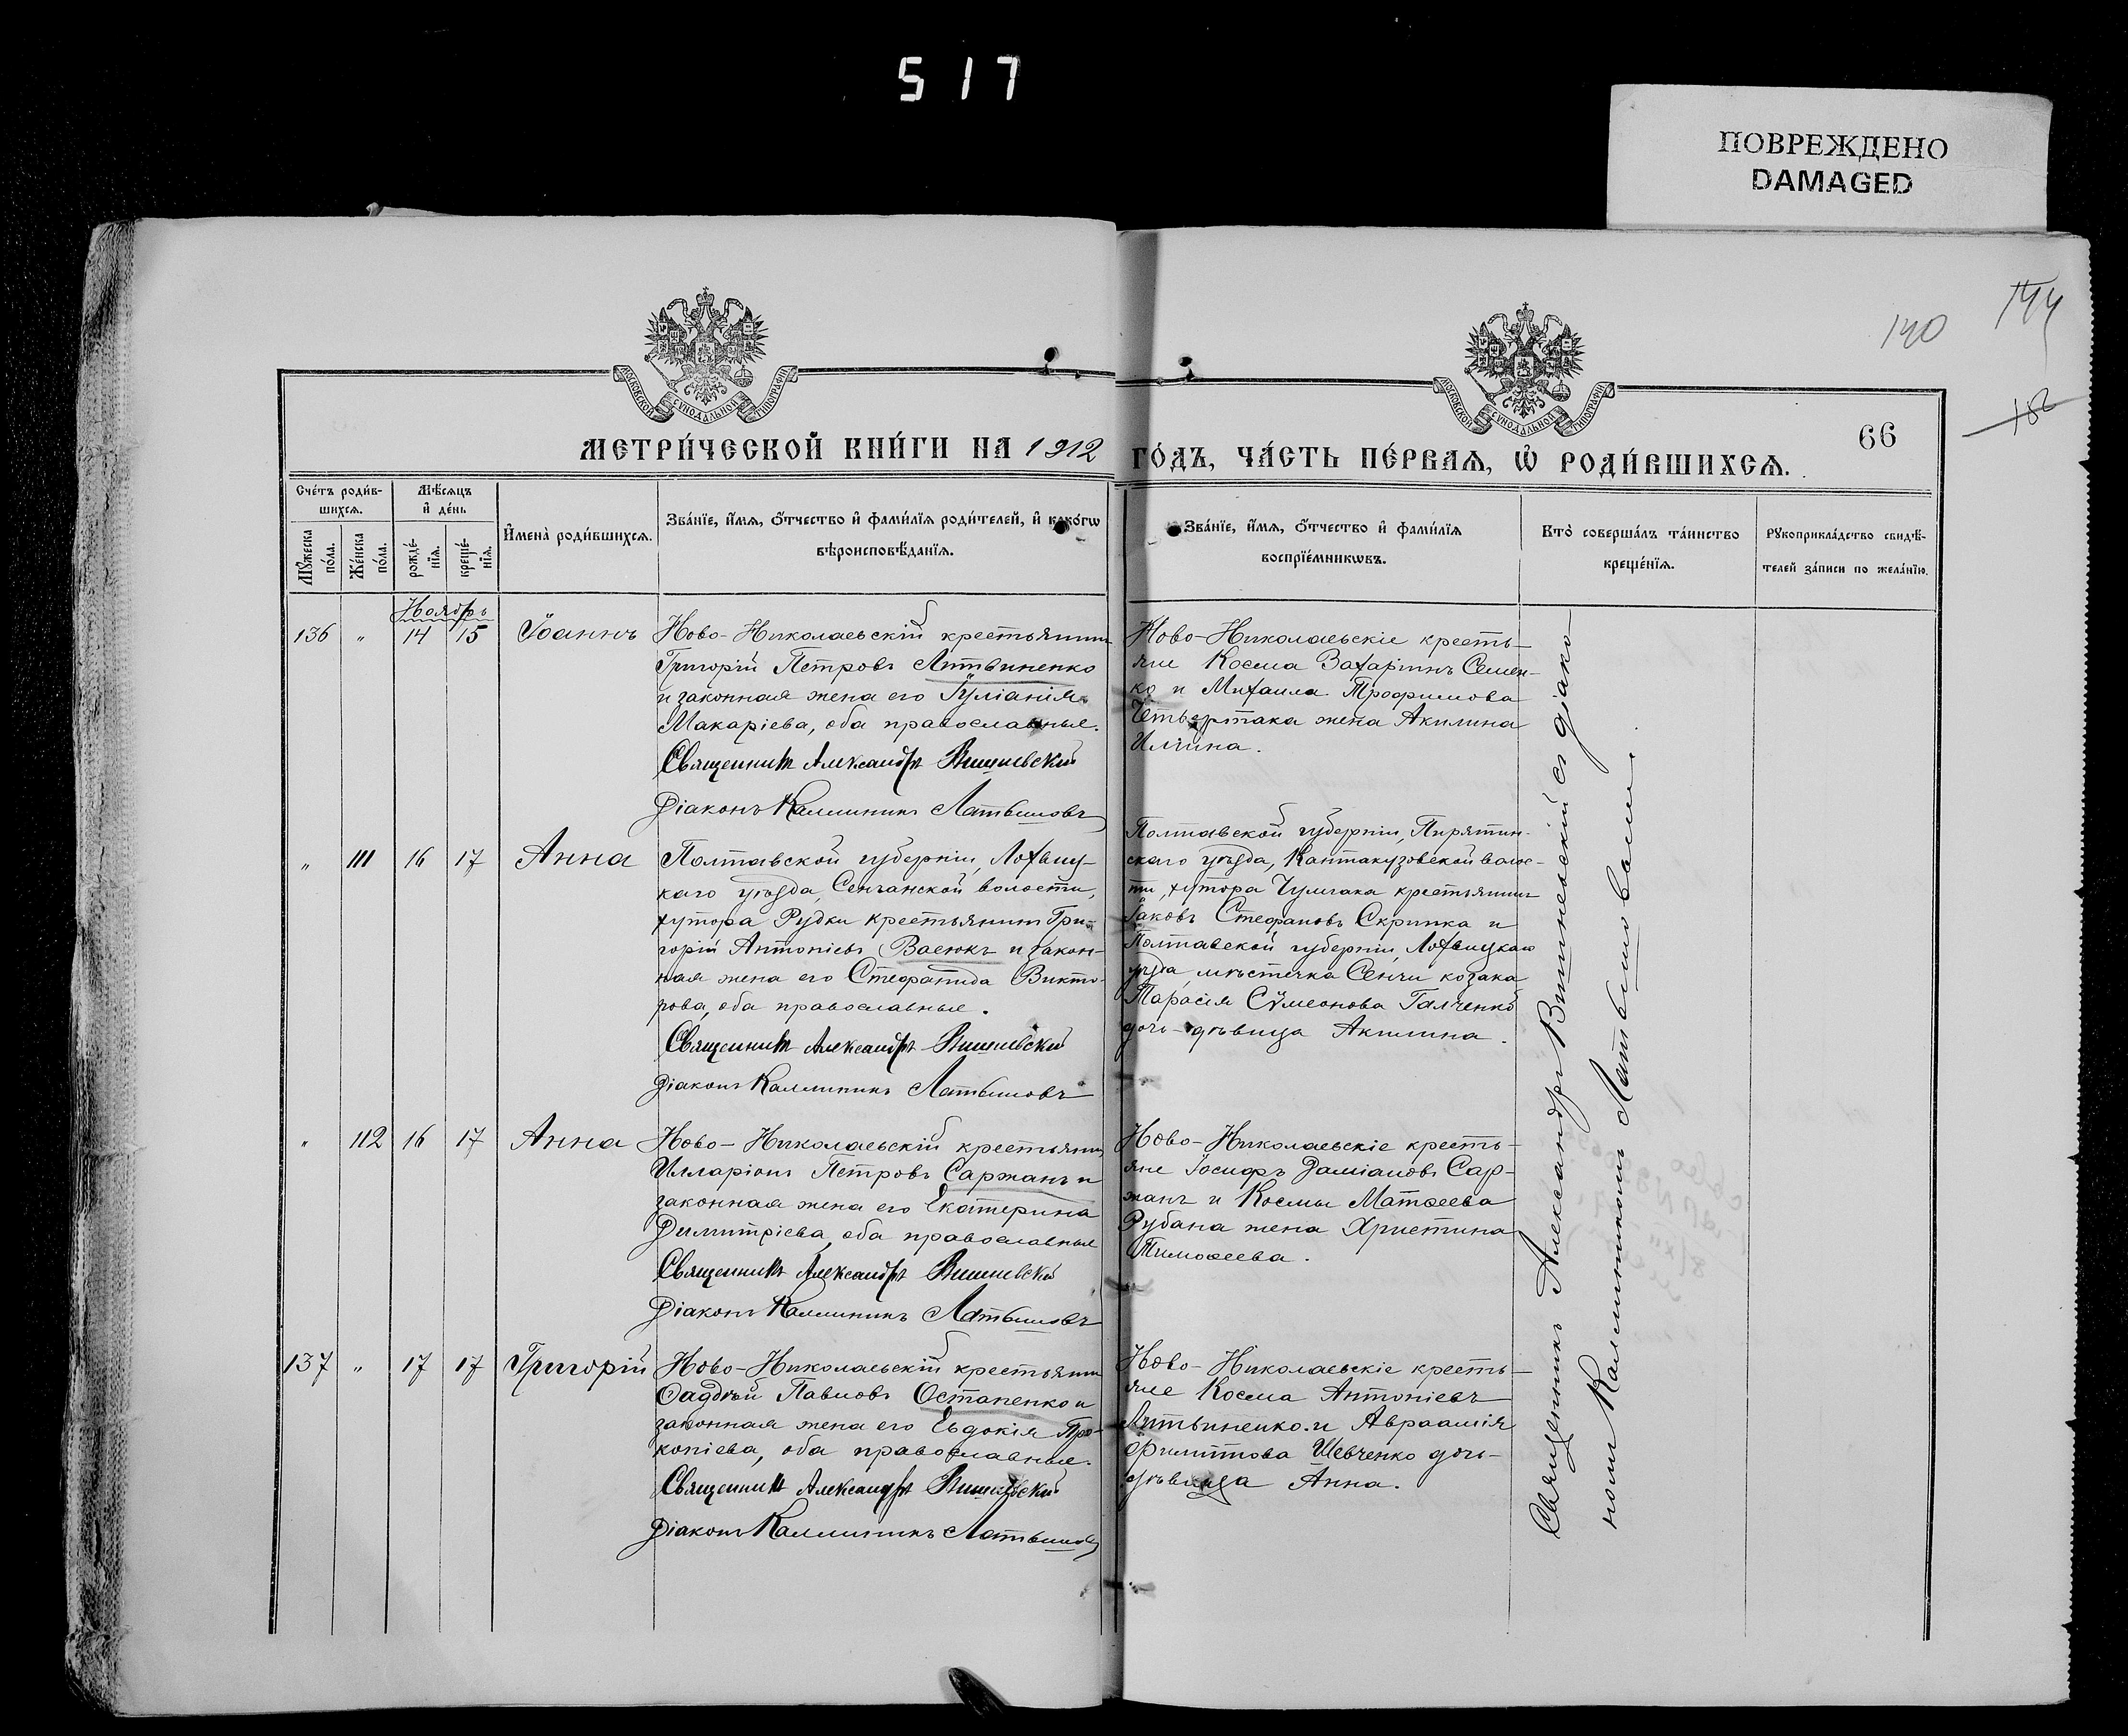 517
ПОВРЕЖДЕНО
DAMAGED
140
144
182
66
МОСКОВСКОЙ СѴНОДАЛЬНОЙ ТИПОГРАФІИ
МОСКОВСКОЙ СѴНОДАЛЬНОЙ ТИПОГРАФІИ
МЕТРИ́ЧЕСКОЙ КНИ́ГИ НА 1912
ГО́ДЪ, ЧА́СТЬ ПЕ́РВАЯ, Ѡ РОДИ́ВШИХСЯ.
Сче́тъ роди́в-
шихся.
Му́жеска по́ла.
Же́нска по́ла.
Мѣ́сяцъ
и де́нь
рожде́-
нія.
креще́-
нія.
Имена̀ роди́вшихся.
Зва́ніе, и́мя, о́тчество и фами́лія роди́телей, и како́гѡ
вѣроисповѣ́данія.
Зва́ніе, и́мя, о́тчество и фами́лія
воспріе́мникѡвъ.
Кто̀ соверша́лъ та́инство
креще́нія.
Рукоприкла́дство свидѣ́-
телей за́писи по жела́нію.
Ноябрь
136 " 14 15 Іоаннъ
Ново-Николаевскій крестьянинъ
Григорій Петровъ Литвиненко
и законная жена его Іуліанія
Макаріева, оба православные.
Священникъ Александръ Вишневскій
Діаконъ Каллиникъ Латышовъ
Ново-Николаевскіе кресть-
яне Косма Захаріинъ Семен-
ко и Михаила Трофимова
Четвертака жена Акилина
Илиина.
" 111 16 17 Анна
Полтавской губерніи, Лохвиц-
каго уѣзда, Сенчанской волости,
хутора Рудки крестьянинъ Гри-
горій Антоніевъ Васюкъ и закон-
ная жена его Стефанида Викто-
рова, оба православные.
Священникъ Александръ Вишневскій
Діаконъ Каллиникъ Латышовъ
Полтавской губерніи, Пирятин-
скаго уѣзда, Кантакузовской волос-
ти, хутора Чумгака крестьянинъ
Іаковъ Стефановъ Скрипка и
Полтавской губерніи, Лохвицкаго
уѣзда, мѣстечка Сенчи козака
Парасія Сѵмеонова Галченко
дочь-дѣвица Акилина.
" 112 16 17 Анна
Ново-Николаевскій крестьянинъ
Илларіонъ Петровъ Саржанъ и
законная жена его Екатерина
Димитріева, оба православные
Священникъ Александръ Вишневскій
Діаконъ Каллиникъ Латышовъ
Ново-Николаевскіе кресть-
яне Іосифъ Даміановъ Сар-
жанъ и Космы Матѳеева
Рубана жена Христина
Тимоѳеева.
137 " 17 17 Григорій
Ново-Николаевскій крестьянинъ
Ѳаддѣй Павловъ Остапенко и
законная жена его Евдокія Про-
копіева, оба православные.
Священникъ Александръ Вишневскій
Діаконъ Каллиникъ Латышовъ
Ново-Николаевскіе кресть-
яне Косма Антоніевъ
Литвиненко и Авраамія
Филиппова Шевченко дочь-
дѣвица Анна.
Священникъ Александръ Вишневскій съ діако-
номъ Каллиникомъ Латышовымъ.